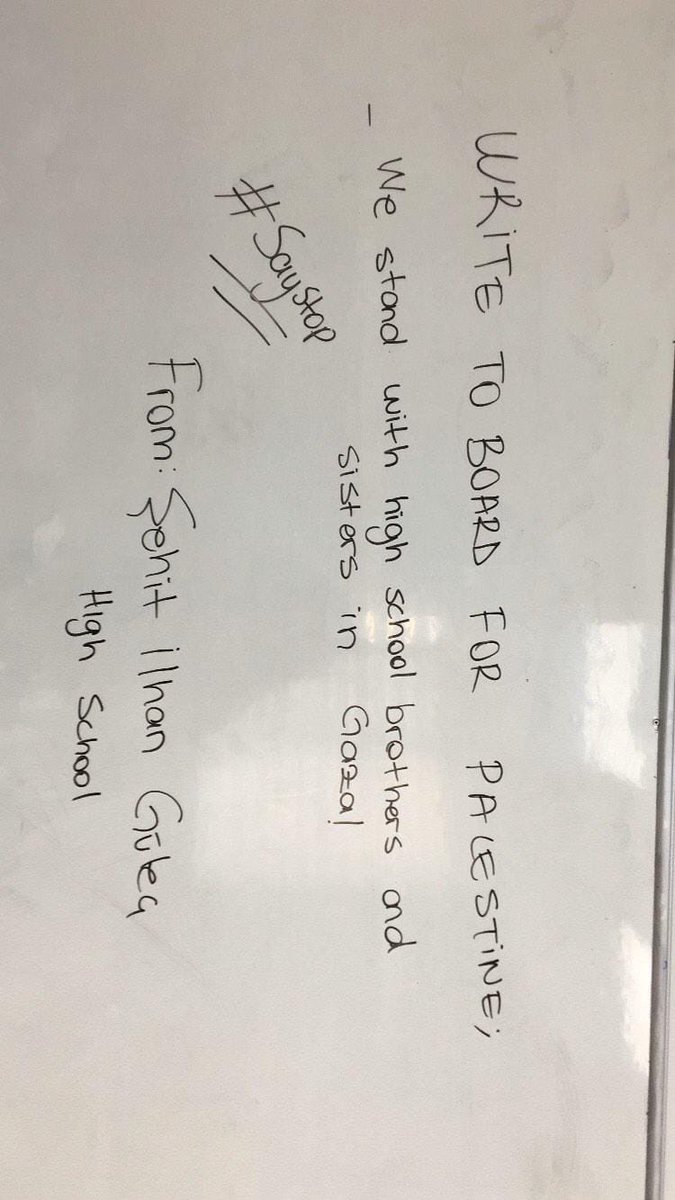 WRiTE TO BOARD FOR PALESTiNE;
- We stand with high school brothers and
sisters in Gaza!
#SayStop
From: Şehit ilhan
High School